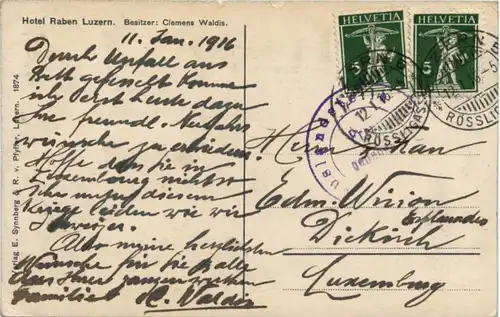 Hotel Raben Luzern. Besitzer: Clemens Waldis.
11. Jan. 1916
Durch Unfall aus
Bett gefesselt komme
ich erst heute dazu
Ihre freundl. Neujahrs
wünsche zu erwidern.
Hoffe dass Sie in
Luxemburg nicht so
sehr unter diesem
Kriege leiden wie wir
Schweizer.
Also meine herzlichsten
Wünsche für Sie & alle
aus Ihrer ganzen werten
Familie! C. Waldis
Verlag E. Synnberg & R. v. Pfyffer, Luzern. 1874
HELVETIA HELVETIA
5 5
LUZERN
12.I.16
RÖSSLIGASSE
Herrn
Edm. Wirion
Esplanades
Diekirch
Luxemburg